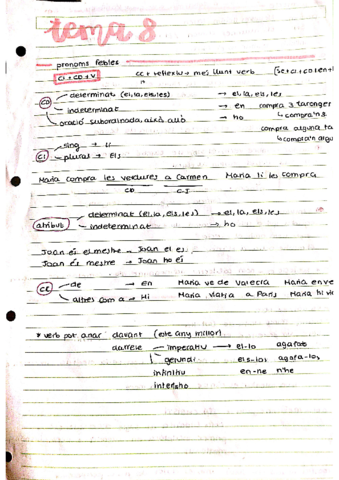 tema 8
pronoms febles
CI + CD + V
CC + reflexiu → més lluny verb
CD
determinat (el, la, els, les) → el, la, els, les
indeterminat → en compra 3 taronger
↳ compra'n 3
oració subordinada, això, allò → ho
compra alguna ta
↳ compra'n algu
CI
sing → li
plural → els
Maria compra les verdures a Carmen Maria li les compra
CD
CI
atribut
determinat (el, la, els, les) → el, la, els, les
indeterminat → ho
Joan és el mestre → Joan el és
Joan és mestre → Joan ho és
de → en Maria ve de Valecia Maria en ve
altres com a → Hi Maria viatja a París Maria hi vi
* verb pot anar davant (este any millor)
darrere
imperatiu → el-lo agafa'l
gerundi els-los agafa-los
infinitiu en-ne n'he